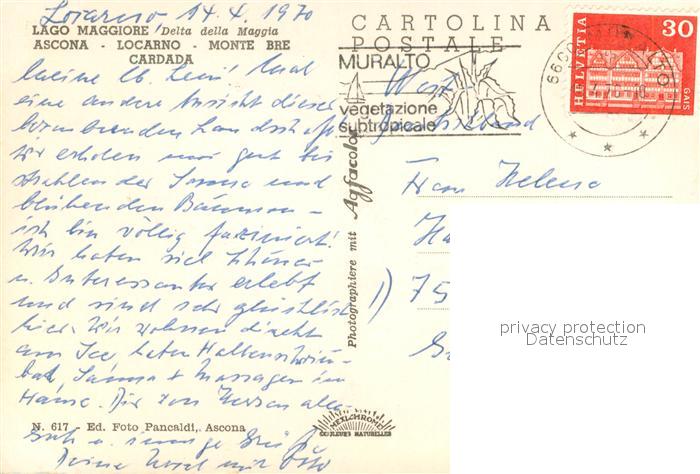 Locarno 14.4.1970
LAGO MAGGIORE / Delta della Maggia
ASCONA - LOCARNO - MONTE BRE
CARDADA
Meine lb. Leni! Mal
eine andere Ansicht dieser
Landschaft
wir erholen uns gut bei
strahlender Sonne und
blühenden Bäumen -
ich bin völlig fasziniert!
Wir haben viel Schönes
u. Interessantes erlebt
und sind sehr glücklich
hier. Wir wohnen direkt
am See, haben Hallenschwimm-
bad, Sauna + Massagen im
Hause. Dir von Herzen alles
N. 617 - Ed. Foto Pancaldi, Ascona
Gute u. innige Grüße
Deine mit Otto
MEXICHROME
COULEURS NATURELLES
Photographiere mit Agfacolor
CARTOLINA
POSTALE
MURALTO
vegetazione
subtropicale
6600
HELVETIA
30
GAIS
Frau Helene
75
privacy protection
Datenschutz